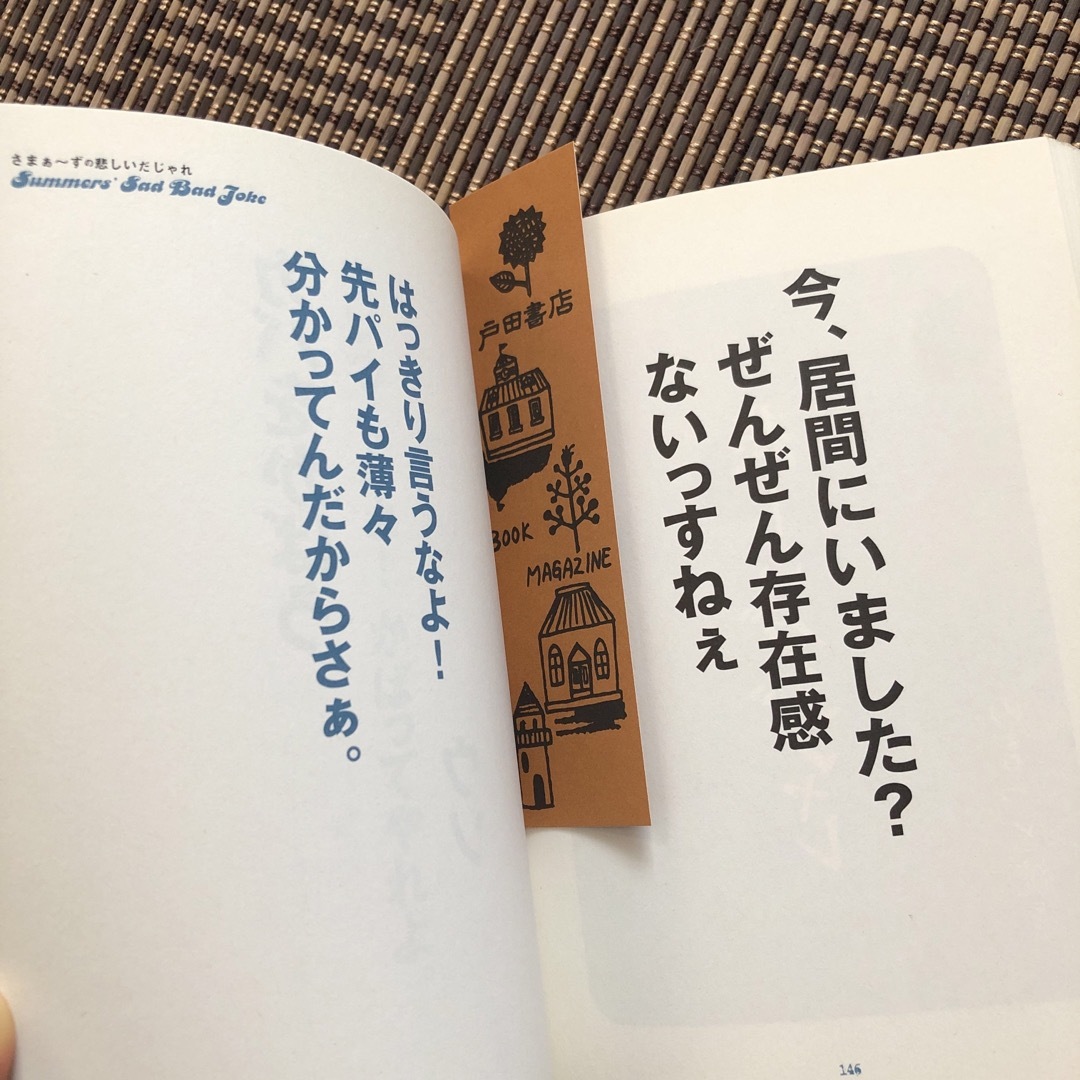 さまぁ〜ずの悲しいだじゃれ
Summers' Sad Bad Joke
今、居間にいました?
ぜんぜん存在感
ないっすねぇ
146
戸田書店
BOOK
MAGAZINE
はっきり言うなよ!
先パイも薄々
分かってんだからさぁ。